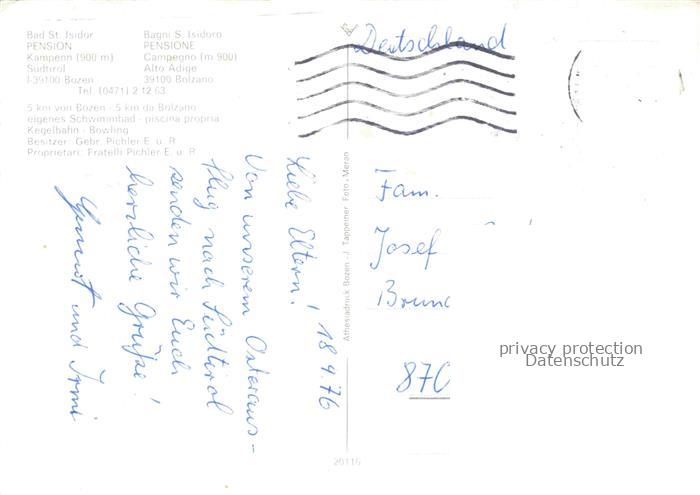 Bad St. Isidor
PENSION
Kampenn (900 m)
Südtirol
I-39100 Bozen
Bagni S. Isidoro
PENSIONE
Campegno (m 900)
Alto Adige
39100 Bolzano
Tel. (0471) 2 12 63
5 km von Bozen - 5 km da Bolzano
eigenes Schwimmbad - piscina propria
Kegelbahn - Bowling
Besitzer: Gebr. Pichler E. u. R.
Proprietari: Fratelli Pichler E. u. R.
Deutschland
18 4.76
Liebe Eltern!
Von unserem Osteraus-
flug nach Südtirol
senden wir Euch
herzliche Grüße!
Gernot und Irmi
Athesiadruck Bozen - J. Tappeiner Foto - Meran
Fam.
Josef
Brunc
870
privacy protection
Datenschutz
20116